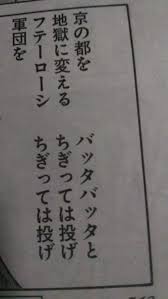 京の都を
地獄に変える
フテーローシ
軍団を
バッタバッタと
ちぎっては投げ
ちぎっては投げ